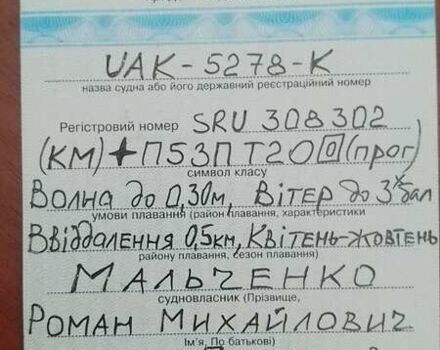 UAK-5278-K
назва судна або його державний реєстраційний номер
Регістровий номер SRU 308302
(КМ)✚П53ПТ20 0 (прог)
символ класу
Волна до 0,30м, Вітер до 3х бал
умови плавання (район плавання, характеристики
Ввіддалення 0,5км, Квітень-Жовтень
району плавання, сезон плавання)
МАЛЬЧЕНКО
судновласник (Прізвище,
РОМАН МИХАЙЛОВИЧ
Ім'я, По батькові)